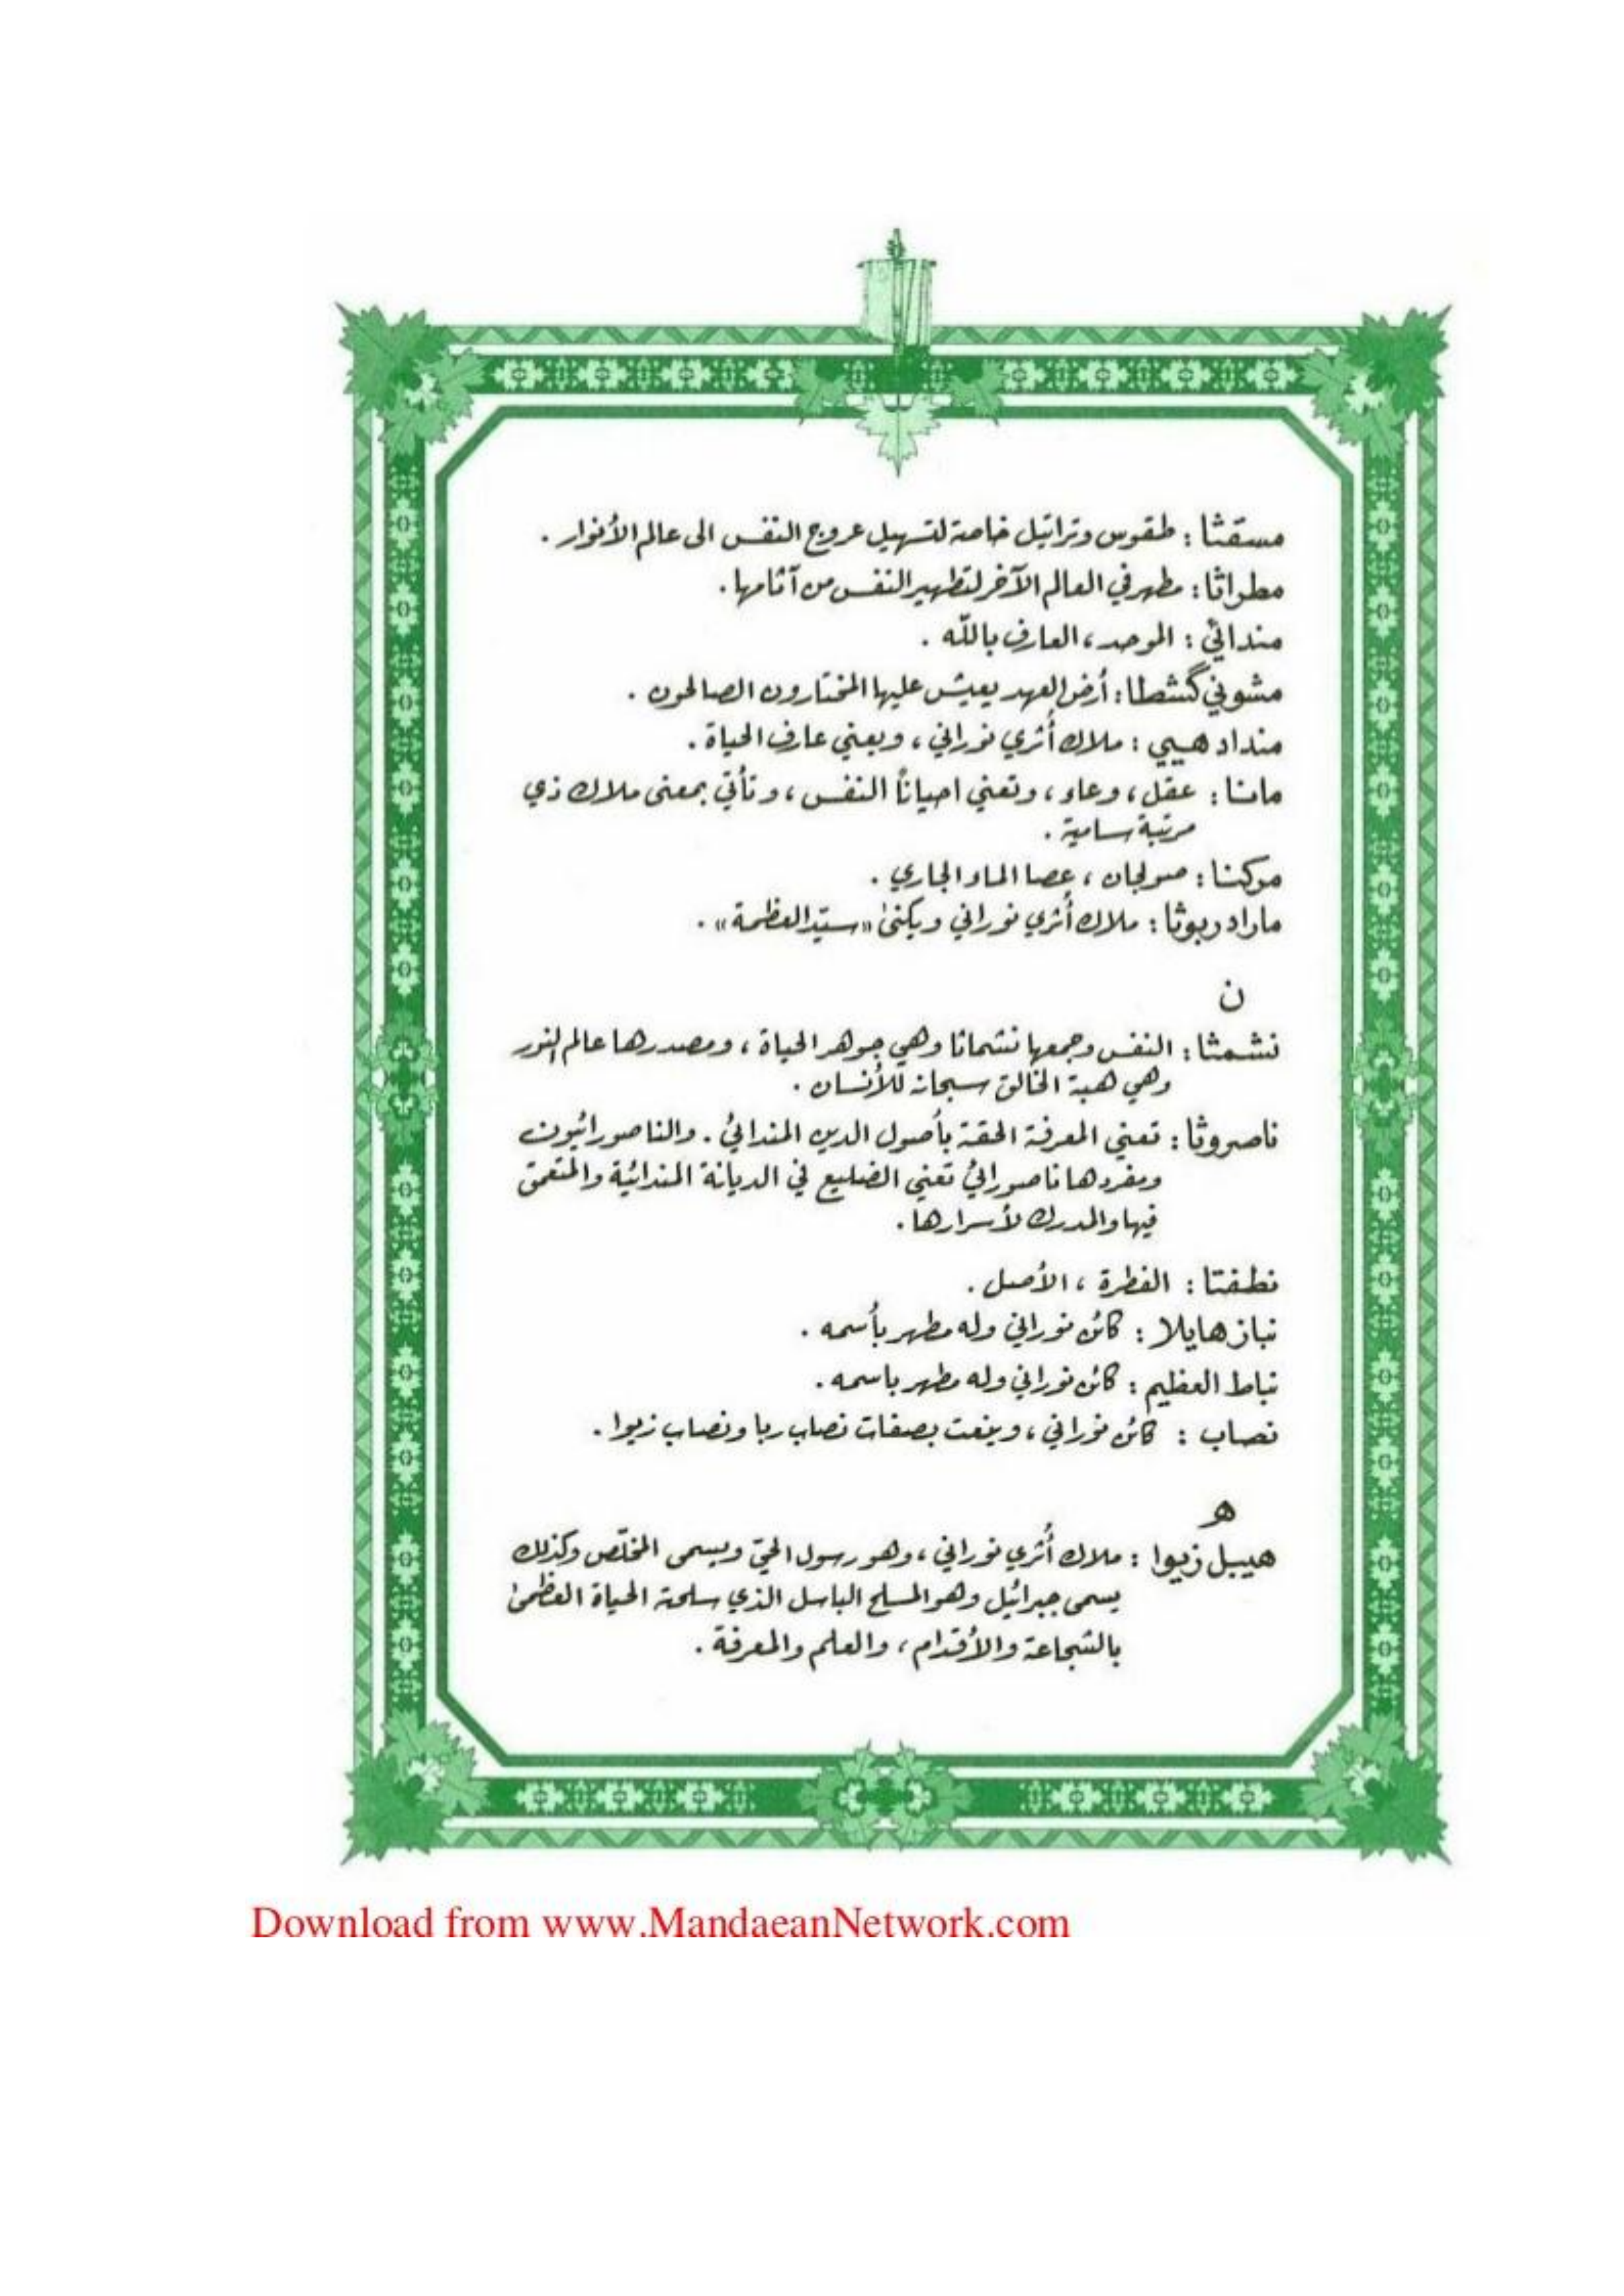 مسقثا : طقوس وتراتيل خاصة لتسهيل عروج النفس الى عالم الأنوار .
مطراثا : مطهر في العالم الآخر لتطهير النفس من آثامها .
مندائي : الموحد ، العارف بالله .
مشوني گشطا : أرض العهد يعيش عليها المختارون الصالحون .
منداد هيي : ملاك أثري نوراني ، ويعني عارف الحياة .
مانا : عقل ، وعاء ، وتعني احياناً النفس ، وتأتي بمعنى ملاك ذي
مرتبة سامية .
مركنا : صولجان ، عصا الماء الجاري .
ماراد ربوثا : ملاك أثري نوراني ويكنى «سيّد العظمة» .
ن
نشمثا : النفس وجمعها نشماثا وهي جوهر الحياة ، ومصدرها عالم النور
وهي هبة الخالق سبحانه للأنسان .
ناصروثا : تعني المعرفة الحقة بأصول الدين المندائي . والناصورائيون
ومفردها ناصورائي تعني الضليع في الديانة المندائية والمتعمق
فيها والمدرك لأسرارها .
نطفتا : الفطرة ، الأصل .
نباز هايلا : كائن نوراني وله مطهر بأسمه .
نباط العظيم : كائن نوراني وله مطهر باسمه .
نصاب : كائن نوراني ، وينعت بصفات نصاب ربا ونصاب زيوا .
هـ
هيبل زيوا : ملاك أثري نوراني ، وهو رسول الحيّ ويسمى المخلّص وكذلك
يسمى جبرائيل وهو المسلح الباسل الذي سلحته الحياة العظمى
بالشجاعة والأقدام ، والعلم والمعرفة .
Download from www.MandaeanNetwork.com